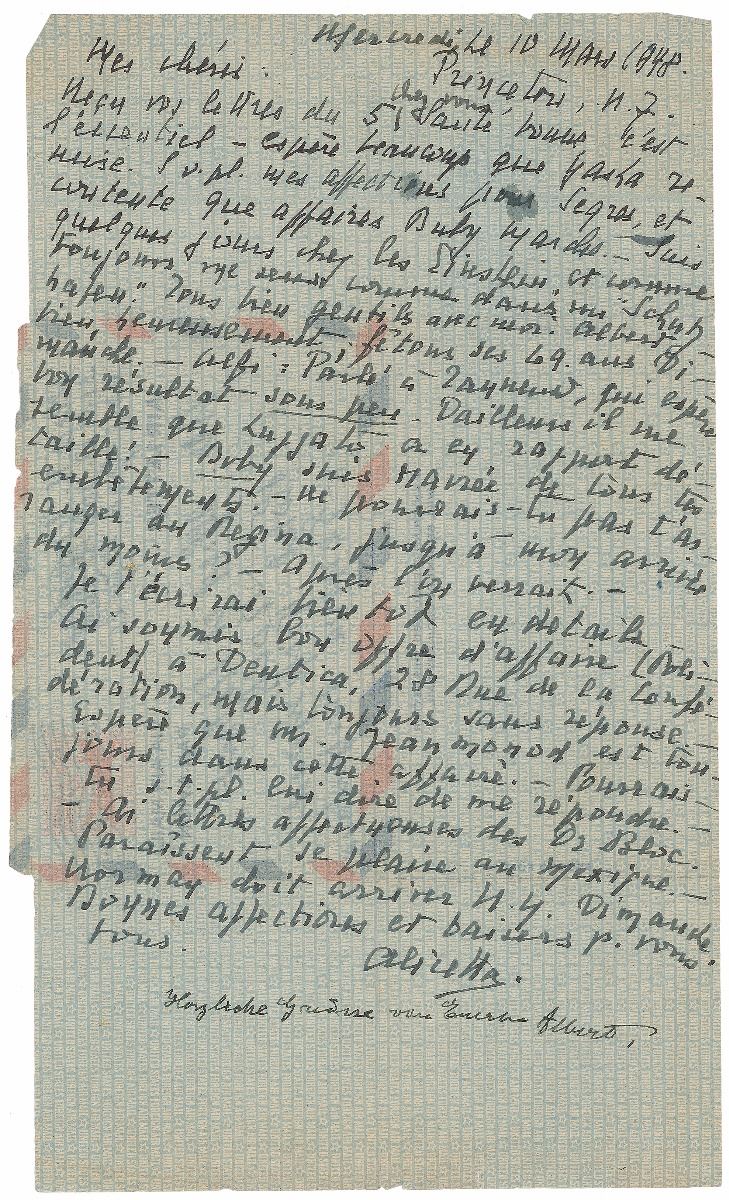 Mercredi, Le 10 Mars 1948.
Mes chéris. Princeton, N.J.
Reçu vos lettres du 5, Santé chez vous bonne, c'est
l'essentiel – espère beaucoup que re-
S.v.pl. mes affections pour Segros, et
contente que affaires Buby marche. – Suis
quelques jours chez les Einstein, et comme
toujours me sens comme dans un "Schatz
hafen." Tous bien gentils avec moi. Albert
bien, heureusement fêtons ses 69. ans Di-
manche. – Alfi: Parlé à Raymond, qui espère
bon résultat sous peu. D'ailleurs il me
semble que Luzzato a en rapport dé-
taillé! – Buby suis navrée de tous tes
embêtements. – Ne pourrais-tu pas t'ar-
ranger au Regina, jusqu'à mon arrivée
du moins? – Après l'on verrait. –
Je t'écrirai bientôt en details.
Ai soumis bon offre d'affaire (Poli-
dent) à Dentica, 28 Rue de la Confé-
dération, mais toujours sans réponse. –
Espère que m. Jean Monod est tou-
jours dans cette affaire. – Pourrais-
tu s.t.pl. lui dire de me répondre. –
– Ai lettres affectueuses des Dr Bloc.
Paraissent se plaire au Mexique. –
Norman doit arriver N.Y. Dimanche.
Bonnes affections et baisers p. vous
tous.
Alicetta.
Herzliche Grüsse von Eurem Albert.